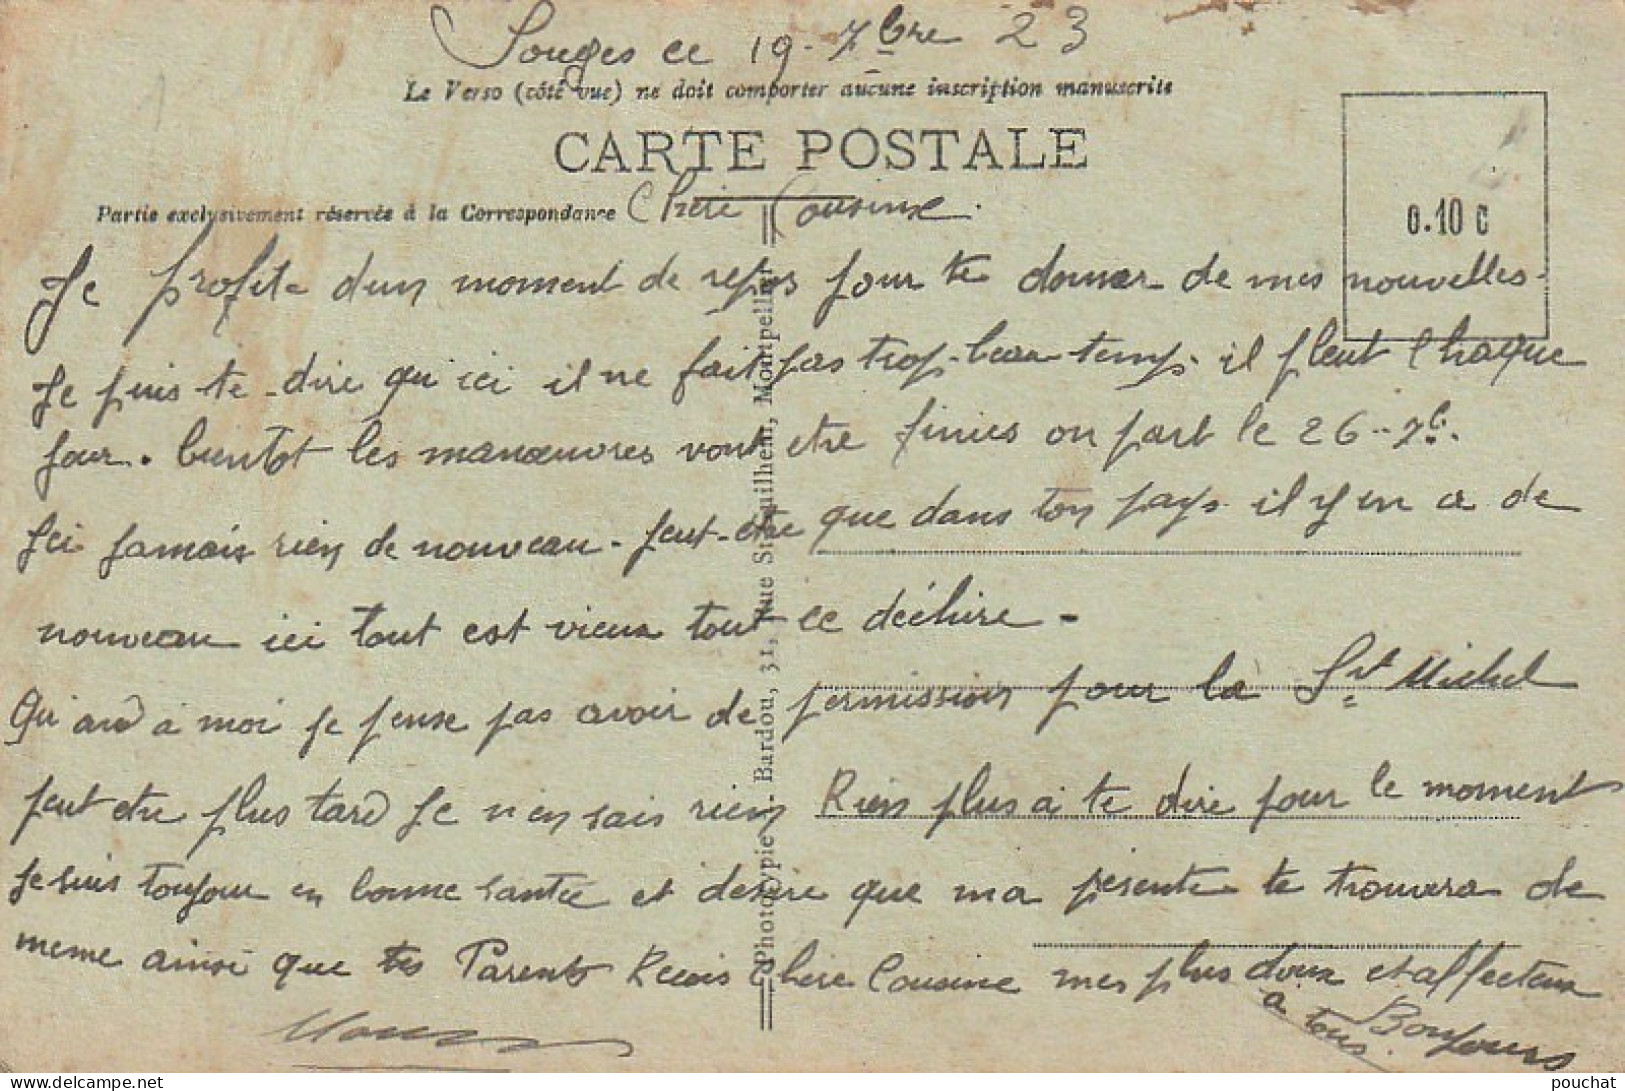 Souges ce 19-7bre 23
Le Verso (côté vue) ne doit comporter aucune inscription manuscrite
CARTE POSTALE
Partie exclusivement réservée à la Correspondance
Chère Cousine.
0.10 c
Je profite dun moment de repos pour te donner de mes nouvelles.
Je puis te dire qu'ici il ne fait pas trop beau temps il pleut chaque
jour. bientot les manœuvres vont etre finies on part le 26-7b.
Ici jamais rien de nouveau - peut-etre que dans ton pays il y en a de
nouveau ici tout est vieux tout ce déchire -
Qu'and à moi je pense pas avoir de permission pour la St Michel
peut etre plus tard Je n'en sais rien Rien plus à te dire pour le moment
Je suis toujour en bonne santée et désire que ma présente te trouvera de
meme ainsi que tes Parents Recois Chère Cousine mes plus doux et affecteux
Bonjours
à tous.
Phototypie Bardou, 31, Rue St-Guilhem, Montpellier
pouchat